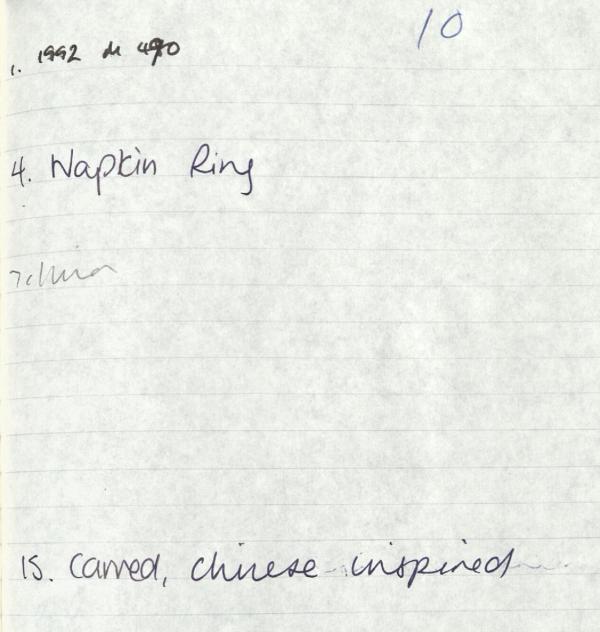 10
1. 1992 de 490
4. Napkin Ring
7 china
15. Carved, chinese inspired